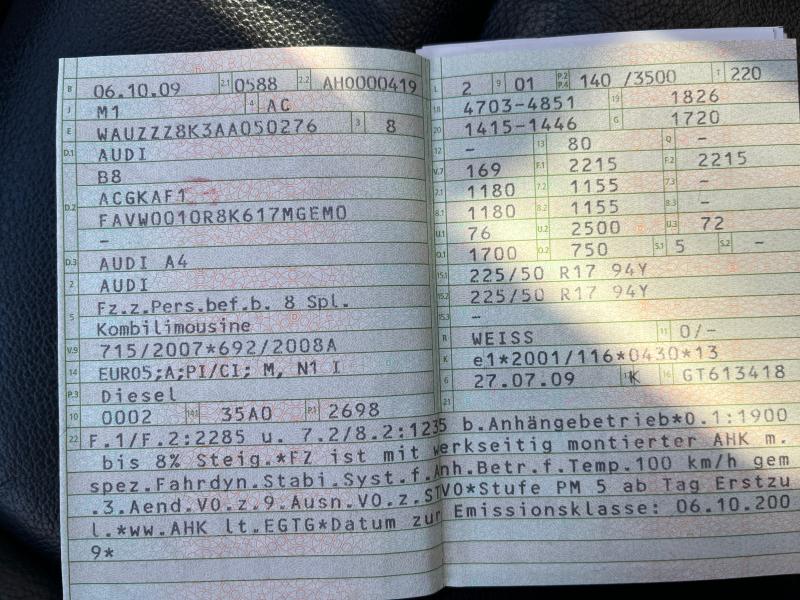 B 06.10.09 2.1 0588 2.2 AH0000419
J M1 4 AC
E WAUZZZ8K3AA050276 3 8
D.1 AUDI
B8
D.2 ACGKAF1
FAVW0010R8K617MGEM0
-
D.3 AUDI A4
2 AUDI
5 Fz.z.Pers.bef.b. 8 Spl.
Kombilimousine
V.9 715/2007*692/2008A
14 EURO5;A;PI/CI; M, N1 I
P.3 Diesel
10 0002 14.1 35A0 P.1 2698
L 2 9 01 P.2 P.4 140 /3500 T 220
18 4703-4851 19 1826
20 1415-1446 G 1720
12 - 13 80 Q -
V.7 169 F.1 2215 F.2 2215
7.1 1180 7.2 1155 7.3 -
8.1 1180 8.2 1155 8.3 -
U.1 76 U.2 2500 U.3 72
O.1 1700 O.2 750 S.1 5 S.2 -
15.1 225/50 R17 94Y
15.2 225/50 R17 94Y
15.3 -
R WEISS 11 0/-
K e1*2001/116*0430*13
6 27.07.09 17 K 16 GT613418
21
22 F.1/F.2:2285 u. 7.2/8.2:1235 b.Anhängebetrieb*O.1:1900
bis 8% Steig.*FZ ist mit werkseitig montierter AHK m.
spez.Fahrdyn.Stabi.Syst.f.Anh.Betr.f.Temp.100 km/h gem
.3.Aend.VO.z.9.Ausn.VO.z.STVO*Stufe PM 5 ab Tag Erstzu
l.*ww.AHK lt.EGTG*Datum zur Emissionsklasse: 06.10.200
9*